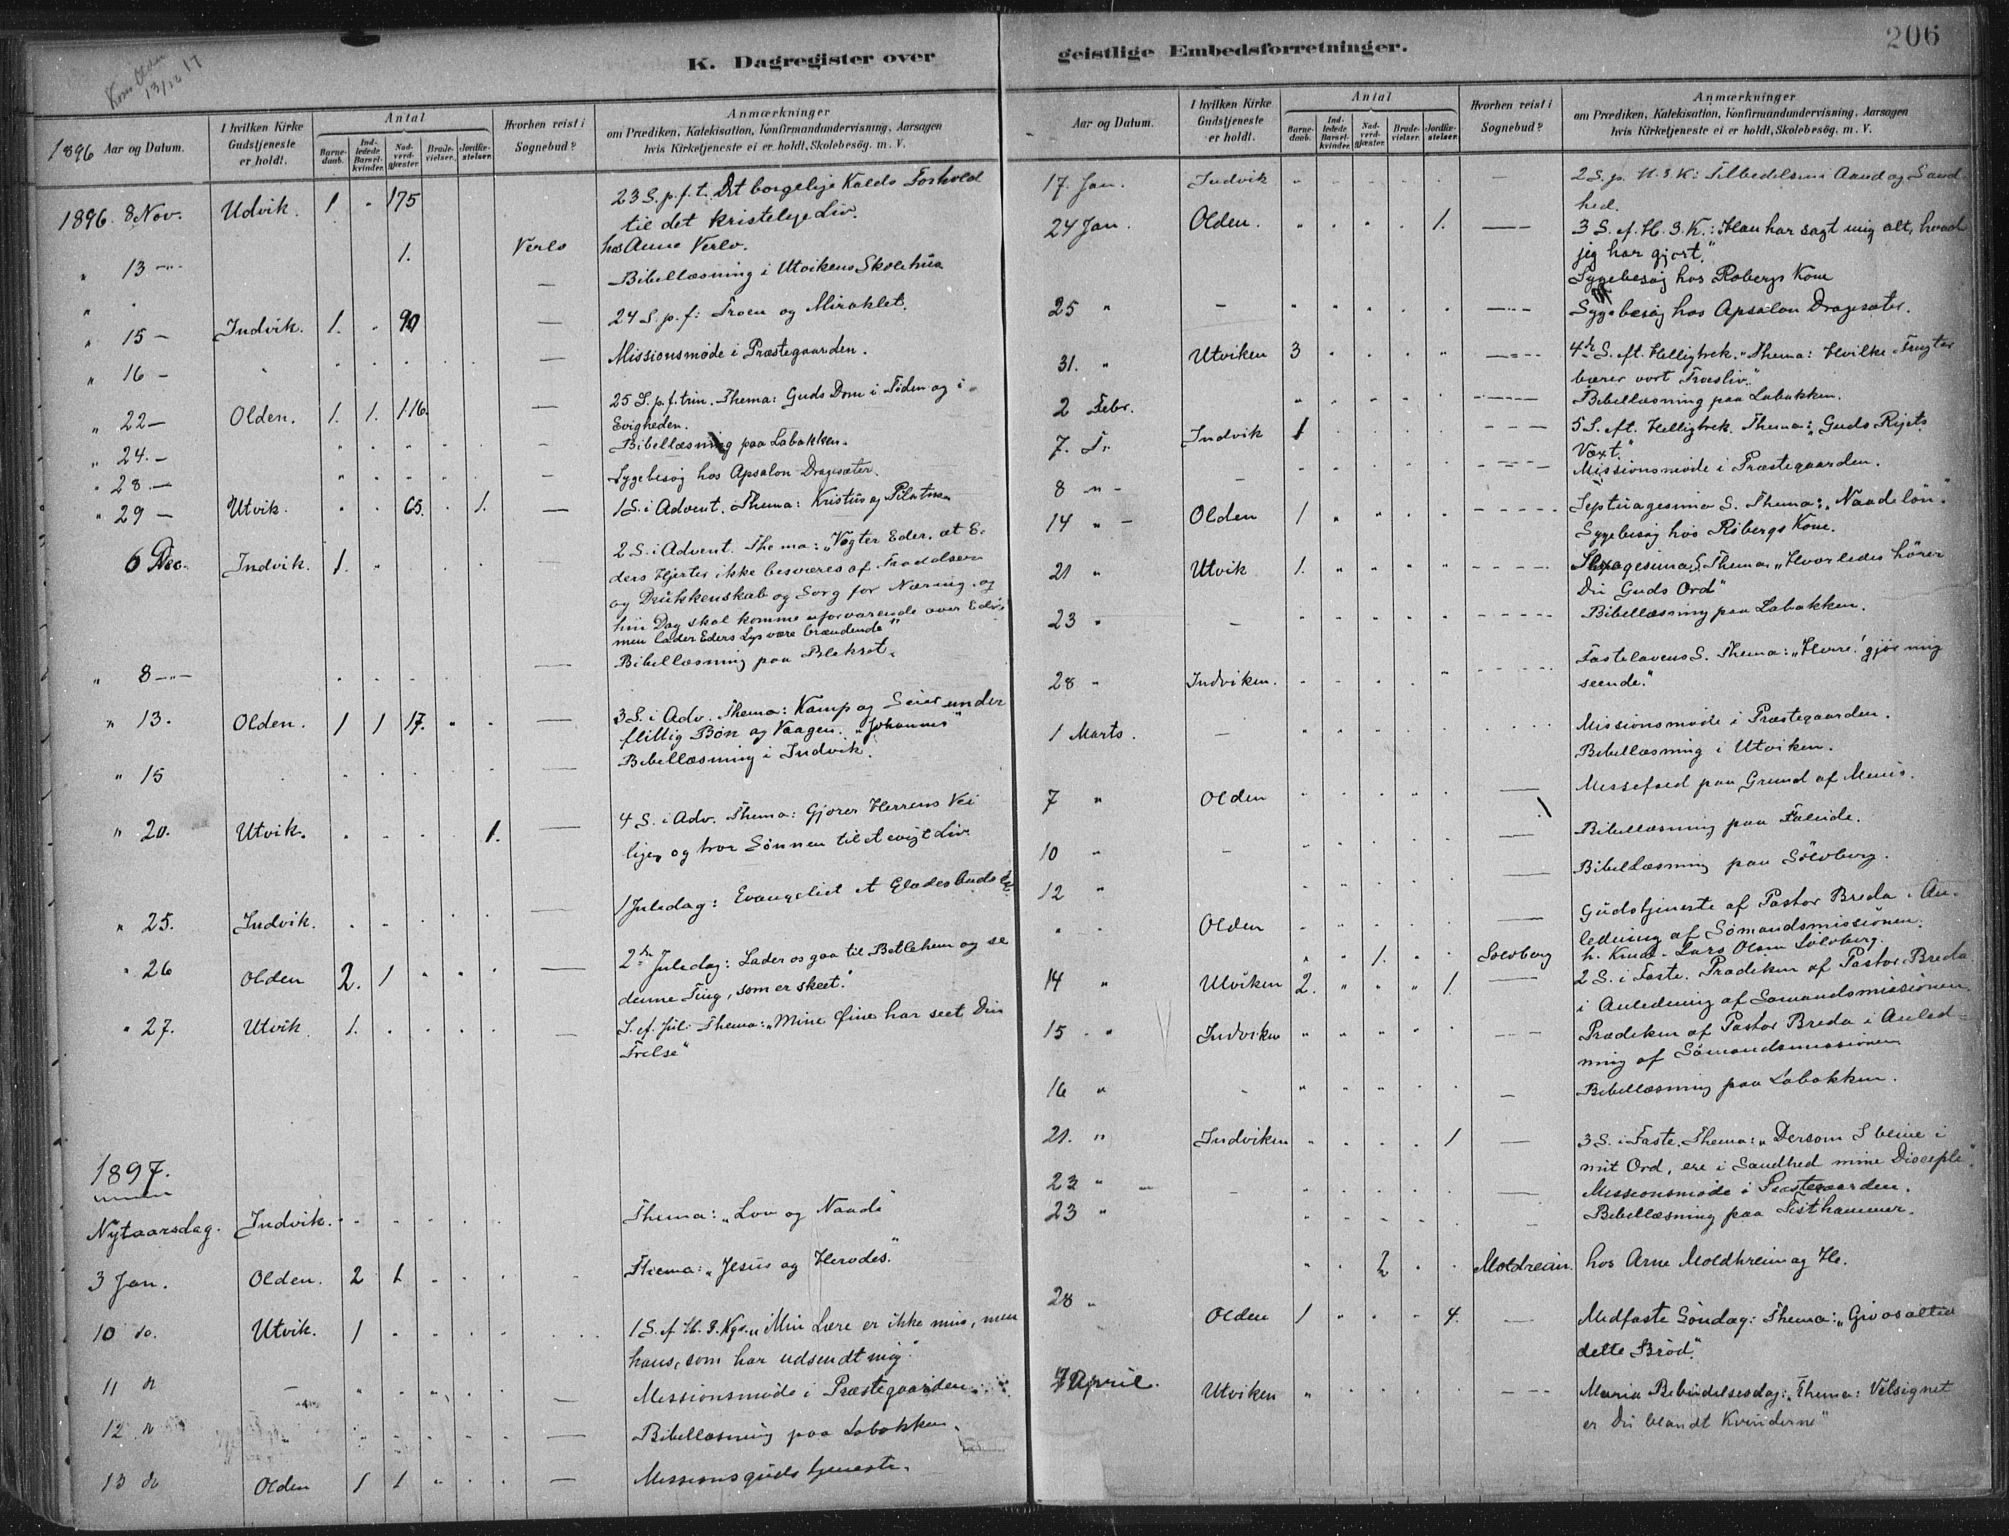 K. Dagregister over
geistlige Embedsforretninger.
206
13/12 17
1896
Aar og Datum.
I hvilken Kirke Gudstjeneste er holdt.
Antal
Barne-daab.
Ind-ledede Barsel-kvinder.
Nad-verd-gjæster.
Brude-vielser.
Jordfæ-stelser.
Hvorhen reist i Sognebud?
Anmærkninger
om Prædiken, Katekisation, Konfirmandundervisning, Aarsagen
hvis Kirketjeneste ei er holdt, Skolebesøg. m. V.
1896. 8 Nov. Udvik. 1 " 175 23 S. p. f. t. Det borgelige Kalds Forhold
til det kristelige Liv.
" 13 — 1. Verlo hos Anne Verlo.
" " — Bibellæsning i Utvikens Skolehus
" 15 — Indvik. 1. . 90 — 24 S. p. f: Troen og Miraklet.
" 16 — — Missionsmøde i Præstegaarden.
" 22 — Olden. 1. 1. 116. — 25 S. p. f. trin. Thema: Guds Dom i Tiden og i
Evigheden.
" 24. — Bibellæsning paaLøbakken.
" 28. — — Sygebesøg hos Apsalon Dragesæter.
" 29 — Utvik. . . 65. . 1. — 1 S. i Advent. Thema: Kristus og Pilatus
6 Dec. Indvik. 1. " 2 S. i Advent. Thema: „Vogter Eder, at E-
ders Hjerter ikke besværes af Fraadseri
og Drukkenskab og Sorg for Næring, og
hiin Dag skal komme uforvarende over Eder,
men lader Eders Lys være brændende"
" 8 — — Bibellæsning paa
" 13. Olden. 1 1 17. " . — 3 S. i Adv. Thema: Kamp og Seier under
flittig Bøn og Vaagen. „Johannes"
" 15 — Bibellæsning i Indvik.
" 20. Utvik. . . . . 1. — 4 S. i Adv. Thema: Gjører Herrens Vei
lige, og tror Sønnen til et evigt Liv.
" 25. Indvik. — 1 Juledag: Evangeliet et Glædesbudsk
" 26 Olden 2. 1 " " " — 2den Juledag: Lader os gaa til Betlehem og se
denne Ting, som er skeet."
" 27. Utvik. 1. — S. ef. Jul. Thema: „Mine Øine har seet Din
Frelse"
1897.
Nytaarsdag. Indvik. Thema: „Lov og Naade
3 Jan. Olden. 2 1 Thema: „Jesus og Herodes."
10 do. Utvik. 1 1 S. ef H. 3. Kgr. „Min Lære er ikke min, men
hans, som har udsendt mig
11 do — Missionsmøde i Præstegaarden
12 do — Bibellæsning paa Løbakken.
13 do Olden 1 1 — Missionsgudstjeneste.
Aar og Datum.
I hvilken Kirke Gudstjeneste er holdt.
Antal
Barne-daab.
Ind-ledede Barsel-kvinder.
Nad-verd-gjæster.
Brude-vielser.
Jordfæ-stelser.
Hvorhen reist i Sognebud?
Anmærkninger
om Prædiken, Katekisation, Konfirmandundervisning, Aarsagen
hvis Kirketjeneste ei er holdt, Skolebesøg. m. V.
17. Jan. Indvik — 2 S. p. H. 3. K: Tilbedelsen i Aand og Sand-
hed.
24 Jan. Olden. " " . . 1. — 3 S. ef. H. 3. K.: „Han har sagt mig alt, hvad
jeg har gjort."
Sygebesøg hos Robergs Kone
25 " — — Sygebesøg hos Apsalon Dragesæter.
31. " Utviken 3 — 4de S. eft. Helligtrek. „Thema: Hvilke Frugter
bærer vort Troesliv."
2 Febr. — Bibellæsning paa Løbakken.
7. F. Indvik 1 5 S. eft. Helligtrek. Thema: „Guds Riges
Vext."
8 " — — Missionsmøde i Præstegaarden.
14 " — Olden 1 Septuagesima S. Thema: „Naadeløn".
Sygebesøg hos Robergs Kone.
21 " Utvik 1. Sexagesima S. Thema: „Hvorledes hører
Du Guds Ord"
23 " — Bibellæsning paa Løbakken.
28 " Indviken. Fastelavens S. Thema: „Herre! gjør mig
seende."
1 Marts. — Missionsmøde i Præstegaarden.
Bibellæsning i Utviken.
7 " Olden — Messefald paa Grund af
10 " — — Bibellæsning paa Faleide.
12 " Bibellæsning paa Sølvberg.
" " Olden — Gudstjeneste af Pastor Breda i An-
ledning af Sømandsmissionen.
" " 1. " . Solvberg h. Knud Lars Olsen Sølvberg.
14 " Utviken 2. " " " 1. — 2 S. i Faste. Prædiken af Pastor Breda
i Anledning af Sømandsmissionen
15 " Indviken — Prædiken af Pastor Breda i Anled-
ning af Sømandsmissionen
16 " — — Bibellæsning paa Løbakken.
21. " Indviken 1 — 3 S. i Faste. Thema: „Dersom I blive i
mit Ord, ere i Sandhed mine Disciple".
23 " — — Missionsmøde i Præstegaarden.
23 " Bibellæsning paa Tisthammer.
2 Moldreim. hos Arne Moldhreim og H.
28 " Olden 1 " " " 4. — Midfaste Søndag: Thema: „Giv os altid
dette Brød."
7 April. Utviken Maria Bebudelsesdag: „Thema: Velsignet
er Du blandt Kvinderne"